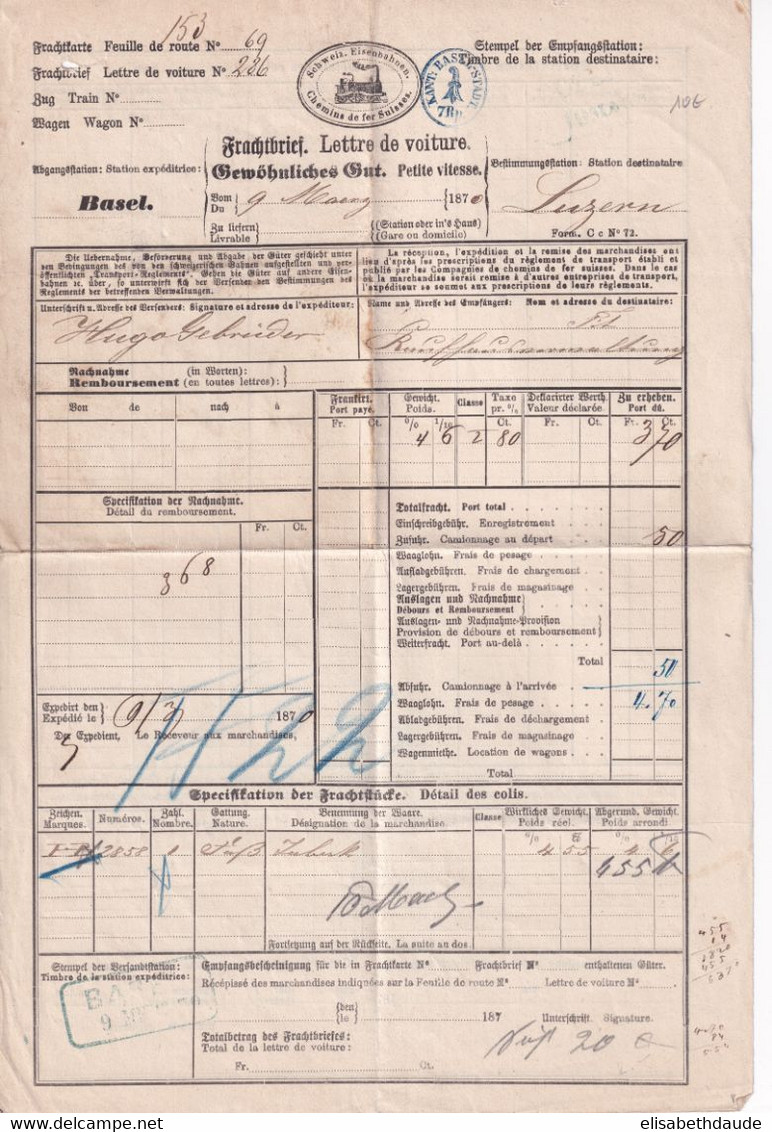 153
Frachtkarte Feuille de route Nº 69
Frachtbrief Lettre de voiture Nº 236
Zug Train Nº
Wagen Wagon Nº
Schweiz. Eisenbahnen.
Chemins de fer Suisses.
KANT: BASEL-STADT
7Rp
Stempel der Empfangsstation:
Timbre de la station destinataire:
10€
Frachtbrief. Lettre de voiture.
Gewöhnliches Gut. Petite vitesse.
Abgangsstation: Station expéditrice:
Basel.
Vom
Du 9 Maerz 1870
Zu liefern
Livrable
(Station oder in's Haus)
(Gare ou domicile)
Bestimmungsstation: Station destinataire
Luzern
Form. C c Nº 72.
Die Uebernahme, Beförderung und Abgabe der Güter geschieht unter
den Bedingungen des von den schweizerischen Bahnen aufgestellten und ver-
öffentlichten „Transport-Reglements". Gehen die Güter auf andere Eisen-
bahnen ꝛc. über, so unterwirft sich der Versender den Bestimmungen des
Reglements der betreffenden Verwaltungen.
La réception, l'expédition et la remise des marchandises ont
lieu d'après les prescriptions du règlement de transport établi et
publié par les Compagnies de chemins de fer suisses. Dans le cas
où la marchandise serait remise à d'autres entreprises de transport,
l'expéditeur se soumet aux prescriptions de leurs règlements.
Unterschrift u. Adresse des Versenders: Signature et adresse de l'expéditeur:
Hugo Gebrüder
Name und Adresse des Empfängers: Nom et adresse du destinataire:
Kaufhausverwaltung
Nachnahme (in Worten):
Remboursement (en toutes lettres):
Von de nach à
Frankirt. Port payé.
Gewicht. Poids.
Classe
Taxe pr. 0/0
Deklarirter Werth. Valeur déclarée.
Zu erheben. Port dû.
Fr. Ct. 0/0 1/10 Ct. Fr. Ct. Fr. Ct.
4 6 2 80 3 70
Spezifikation der Nachnahme.
Détail du remboursement.
Fr. Ct.
368
Totalfracht. Port total
Einschreibgebühr. Enregistrement
Zufuhr. Camionnage au départ 50
Waaglohn. Frais de pesage
Aufladgebühren. Frais de chargement
Lagergebühren. Frais de magasinage
Auslagen und Nachnahme
Débours et Remboursement
Auslagen- und Nachnahme-Provision
Provision de débours et remboursement
Weiterfracht. Port au-delà
Total 50
Abfuhr. Camionnage à l'arrivée
Waaglohn. Frais de pesage 4 70
Abladgebühren. Frais de déchargement
Lagergebühren. Frais de magasinage
Wagenmiethe. Location de wagons
Total
Expedirt den
Expédié le 9/3 1870
Der Expedient, Le Receveur aux marchandises,
1522
Spezifikation der Frachtstücke. Détail des colis.
Zeichen. Marques.
Numéros.
Zahl. Nombre.
Gattung. Nature.
Benennung der Waare. Désignation de la marchandise
Classe
Wirkliches Gewicht. Poids réel.
Abgerund. Gewicht. Poids arrondi.
2858 1 Faß Tabak 4 55 4 6
455
Fortsetzung auf der Rückseite. La suite au dos
Stempel der Versandtstation:
Timbre de la station expéditrice:
Empfangsbescheinigung für die in Frachtkarte Nº Frachtbrief Nº enthaltenen Güter.
Récépissé des marchandises indiquées sur la Feuille de route Nº Lettre de voiture Nº
den
le 187
Unterschrift. Signature.
Totalbetrag des Frachtbriefes:
Total de la lettre de voiture:
Fr. Ct.
20
elisabethdaude